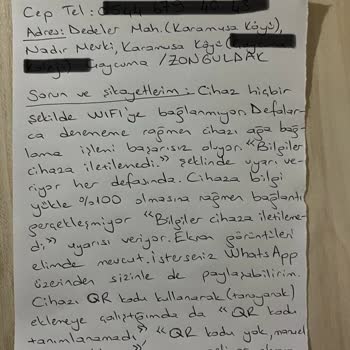 Cep Tel:
Adres: Dedeler Mah. (Karamusa Köyü),
Nadır Mevki, Karamusa Köyü
Çaycuma / ZONGULDAK
Sorun ve şikayetlerim: Cihaz hiçbir
şekilde WIFI'ye bağlanmıyor. Defalar-
ca denememe rağmen cihazı ağa bağ-
lama işlemi başarısız oluyor. "Bilgiler
cihaza iletilemedi." şeklinde uyarı ve-
riyor her defasında. Cihaza bilgi
yükle %100 olmasına rağmen bağlantı
gerçekleşmiyor "Bilgiler cihaza iletileme-
di" uyarısı veriyor. Ekran görüntüleri
elimde mevcut. İsterseniz WhatsApp
üzerinden sizinle de paylaşabilirim.
Cihazı QR kodu kullanarak (tarayarak)
eklemeye çalıştığımda da "QR kodu
tanımlanamadı" "QR kodu yok, manuel